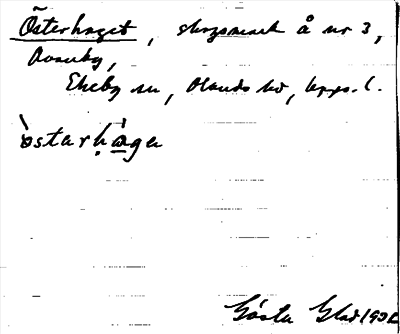 Österhaget, skogsmark å nr 3,
Ovanby,
Ekeby sn, Olands hd, Upps. l.
òstarhága
Gösta Glad 1931